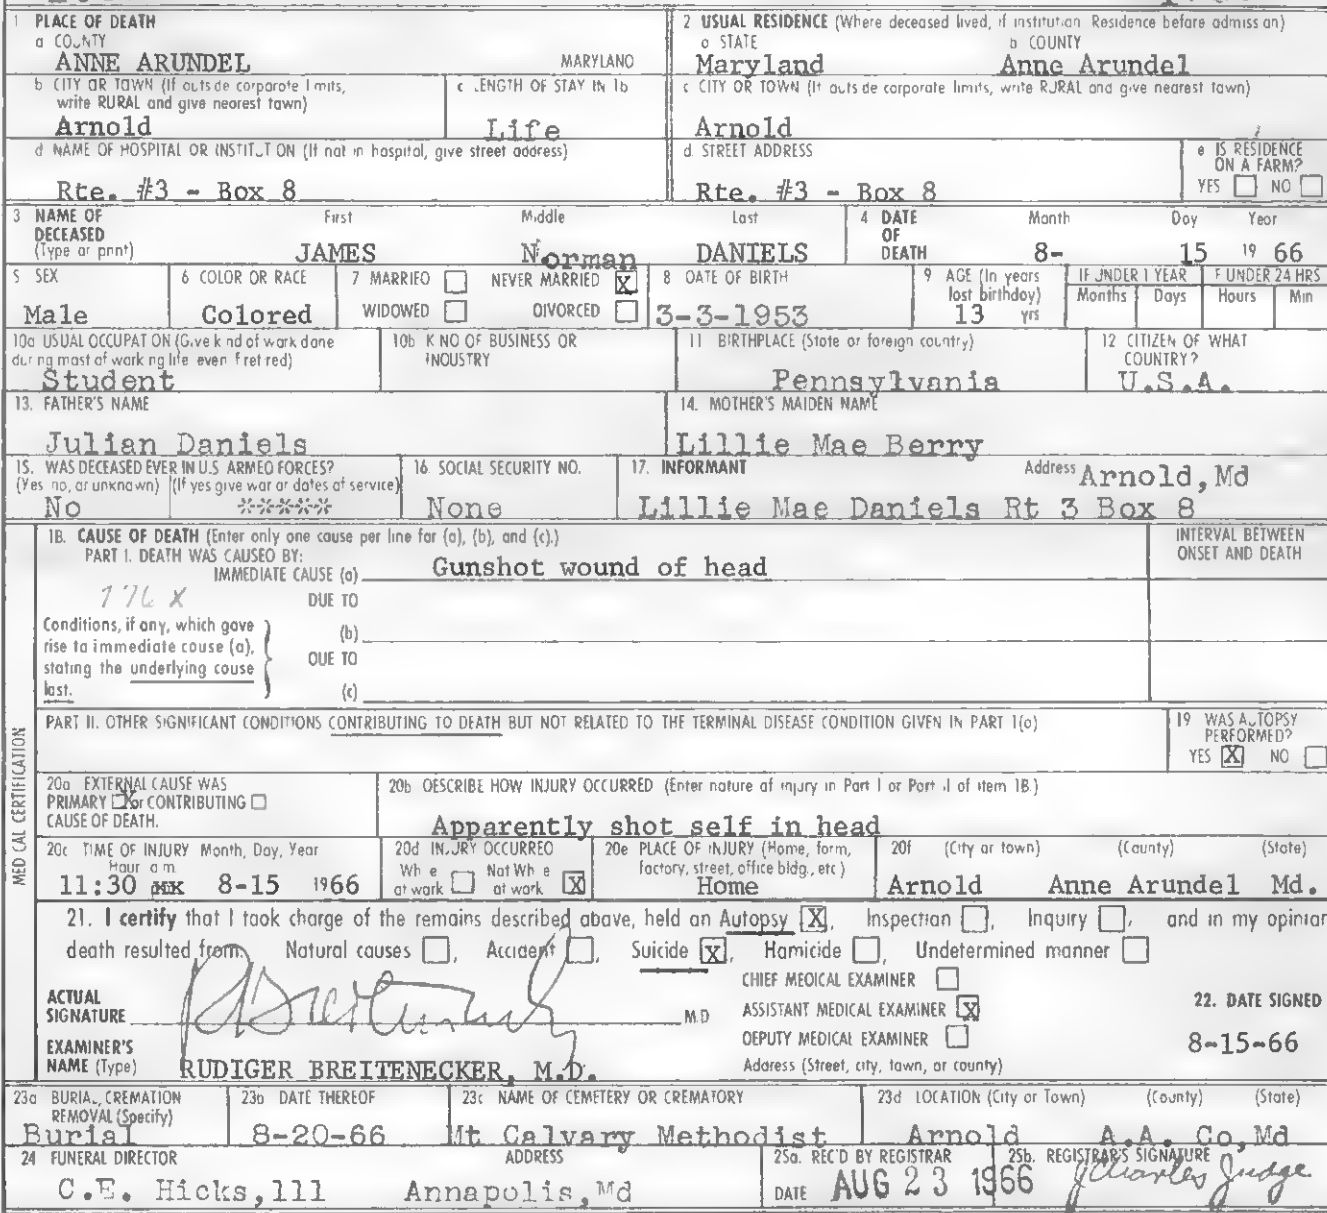 1 PLACE OF DEATH
a COUNTY
ANNE ARUNDEL MARYLAND
2 USUAL RESIDENCE (Where deceased lived, if institution Residence before admission)
a STATE b COUNTY
Maryland Anne Arundel
b CITY OR TOWN (If outside corporate limits, write RURAL and give nearest town)
Arnold
c LENGTH OF STAY IN 1b
Life
c CITY OR TOWN (If outside corporate limits, write RURAL and give nearest town)
Arnold
d NAME OF HOSPITAL OR INSTITUTION (If not in hospital, give street address)
Rte. #3 - Box 8
d. STREET ADDRESS
Rte. #3 - Box 8
e IS RESIDENCE ON A FARM?
YES NO
3 NAME OF DECEASED (Type or print)
First Middle Last
JAMES Norman DANIELS
4 DATE OF DEATH
Month Day Year
8- 15 19 66
5 SEX
Male
6 COLOR OR RACE
Colored
7 MARRIED NEVER MARRIED X
WIDOWED DIVORCED
8 DATE OF BIRTH
3-3-1953
9 AGE (In years last birthday)
13 yrs
IF UNDER 1 YEAR
Months Days
IF UNDER 24 HRS
Hours Min
10a USUAL OCCUPATION (Give kind of work done during most of working life even if retired)
Student
10b KIND OF BUSINESS OR INDUSTRY
11 BIRTHPLACE (State or foreign country)
Pennsylvania
12 CITIZEN OF WHAT COUNTRY?
U.S.A.
13. FATHER'S NAME
Julian Daniels
14. MOTHER'S MAIDEN NAME
Lillie Mae Berry
15. WAS DECEASED EVER IN U.S. ARMED FORCES?
(Yes no, or unknown) (If yes give war or dates of service)
No *****
16. SOCIAL SECURITY NO.
None
17. INFORMANT Address Arnold, Md
Lillie Mae Daniels Rt 3 Box 8
MEDICAL CERTIFICATION
18. CAUSE OF DEATH (Enter only one cause per line for (a), (b), and (c).)
PART I. DEATH WAS CAUSED BY:
IMMEDIATE CAUSE (a) Gunshot wound of head
INTERVAL BETWEEN ONSET AND DEATH
DUE TO
Conditions, if any, which gave rise to immediate cause (a), stating the underlying cause last.
(b)
DUE TO
(c)
PART II. OTHER SIGNIFICANT CONDITIONS CONTRIBUTING TO DEATH BUT NOT RELATED TO THE TERMINAL DISEASE CONDITION GIVEN IN PART 1(a)
19 WAS AUTOPSY PERFORMED?
YES X NO
20a EXTERNAL CAUSE WAS
PRIMARY X or CONTRIBUTING
CAUSE OF DEATH.
20b DESCRIBE HOW INJURY OCCURRED (Enter nature of injury in Part I or Part II of item 18.)
Apparently shot self in head
20c TIME OF INJURY Month, Day, Year
Hour a m
11:30 8-15 1966
20d INJURY OCCURRED
While at work Not While at work X
20e PLACE OF INJURY (Home, farm, factory, street, office bldg., etc)
Home
20f (City or town) (County) (State)
Arnold Anne Arundel Md.
21. I certify that I took charge of the remains described above, held an Autopsy X, Inspection , Inquiry , and in my opinion
death resulted from: Natural causes , Accident , Suicide X, Homicide , Undetermined manner
CHIEF MEDICAL EXAMINER
ACTUAL SIGNATURE M.D
ASSISTANT MEDICAL EXAMINER X
DEPUTY MEDICAL EXAMINER
22. DATE SIGNED
8-15-66
EXAMINER'S NAME (Type) RUDIGER BREITENECKER, M.D.
Address (Street, city, town, or county)
23a BURIAL, CREMATION REMOVAL (Specify)
Burial
23b DATE THEREOF
8-20-66
23c NAME OF CEMETERY OR CREMATORY
Mt Calvary Methodist
23d LOCATION (City or Town) (County) (State)
Arnold A.A. Co, Md
24 FUNERAL DIRECTOR ADDRESS
C.E. Hicks, 111 Annapolis, Md
25a. REC'D BY REGISTRAR
DATE AUG 23 1966
25b. REGISTRAR'S SIGNATURE
J Charles Judge